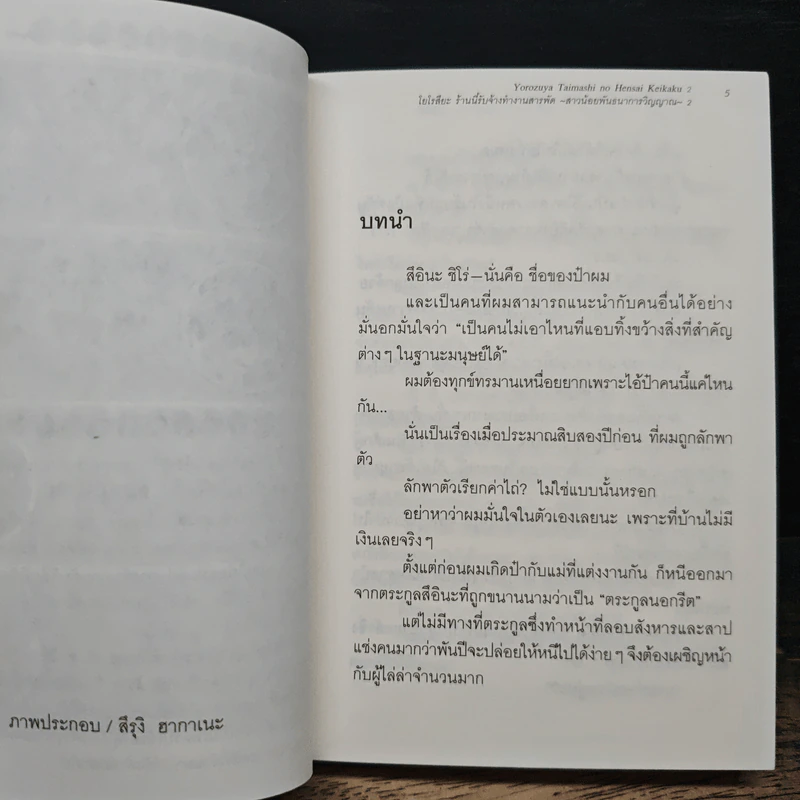 ภาพประกอบ / สึรุงิ ฮากาเนะ
Yorozuya Taimashi no Hensai Keikaku 2
5
โยโรสึยะ ร้านนี้รับจ้างทำงานสารพัด ~สาวน้อยพันธนาการวิญญาณ~ 2
บทนำ
สึอินะ ชิโร่—นั่นคือ ชื่อของป๋าผม
และเป็นคนที่ผมสามารถแนะนำกับคนอื่นได้อย่าง
มั่นอกมั่นใจว่า “เป็นคนไม่เอาไหนที่แอบทิ้งขว้างสิ่งที่สำคัญ
ต่างๆ ในฐานะมนุษย์ได้”
ผมต้องทุกข์ทรมานเหนื่อยยากเพราะไอ้ป๋าคนนี้แค่ไหน
กัน...
นั่นเป็นเรื่องเมื่อประมาณสิบสองปีก่อน ที่ผมถูกลักพา
ตัว
ลักพาตัวเรียกค่าไถ่? ไม่ใช่แบบนั้นหรอก
อย่าหาว่าผมมั่นใจในตัวเองเลยนะ เพราะที่บ้านไม่มี
เงินเลยจริงๆ
ตั้งแต่ก่อนผมเกิดป๋ากับแม่ที่แต่งงานกัน ก็หนีออกมา
จากตระกูลสึอินะที่ถูกขนานนามว่าเป็น “ตระกูลนอกรีต”
แต่ไม่มีทางที่ตระกูลซึ่งทำหน้าที่ลอบสังหารและสาป
แช่งคนมากว่าพันปีจะปล่อยให้หนีไปได้ง่ายๆ จึงต้องเผชิญหน้า
กับผู้ไล่ล่าจำนวนมาก